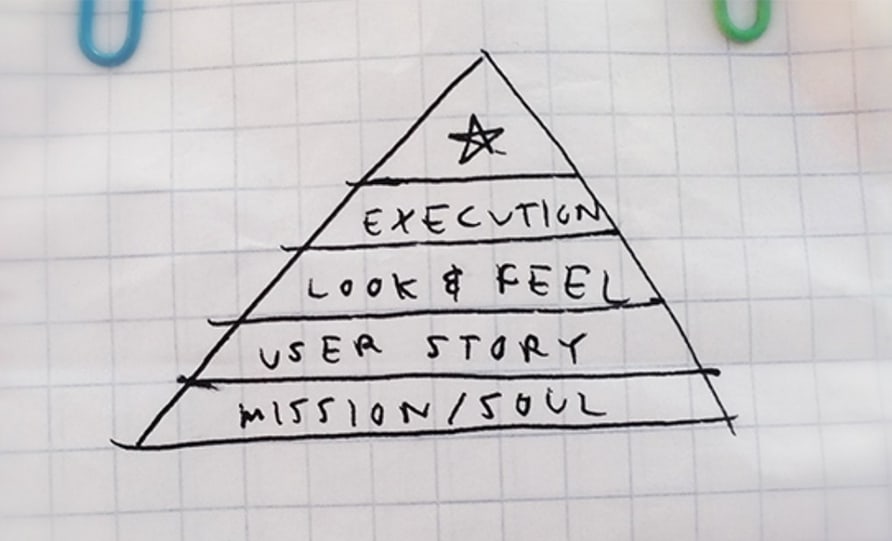 EXECUTION
LOOK & FEEL
USER STORY
MISSION/SOUL